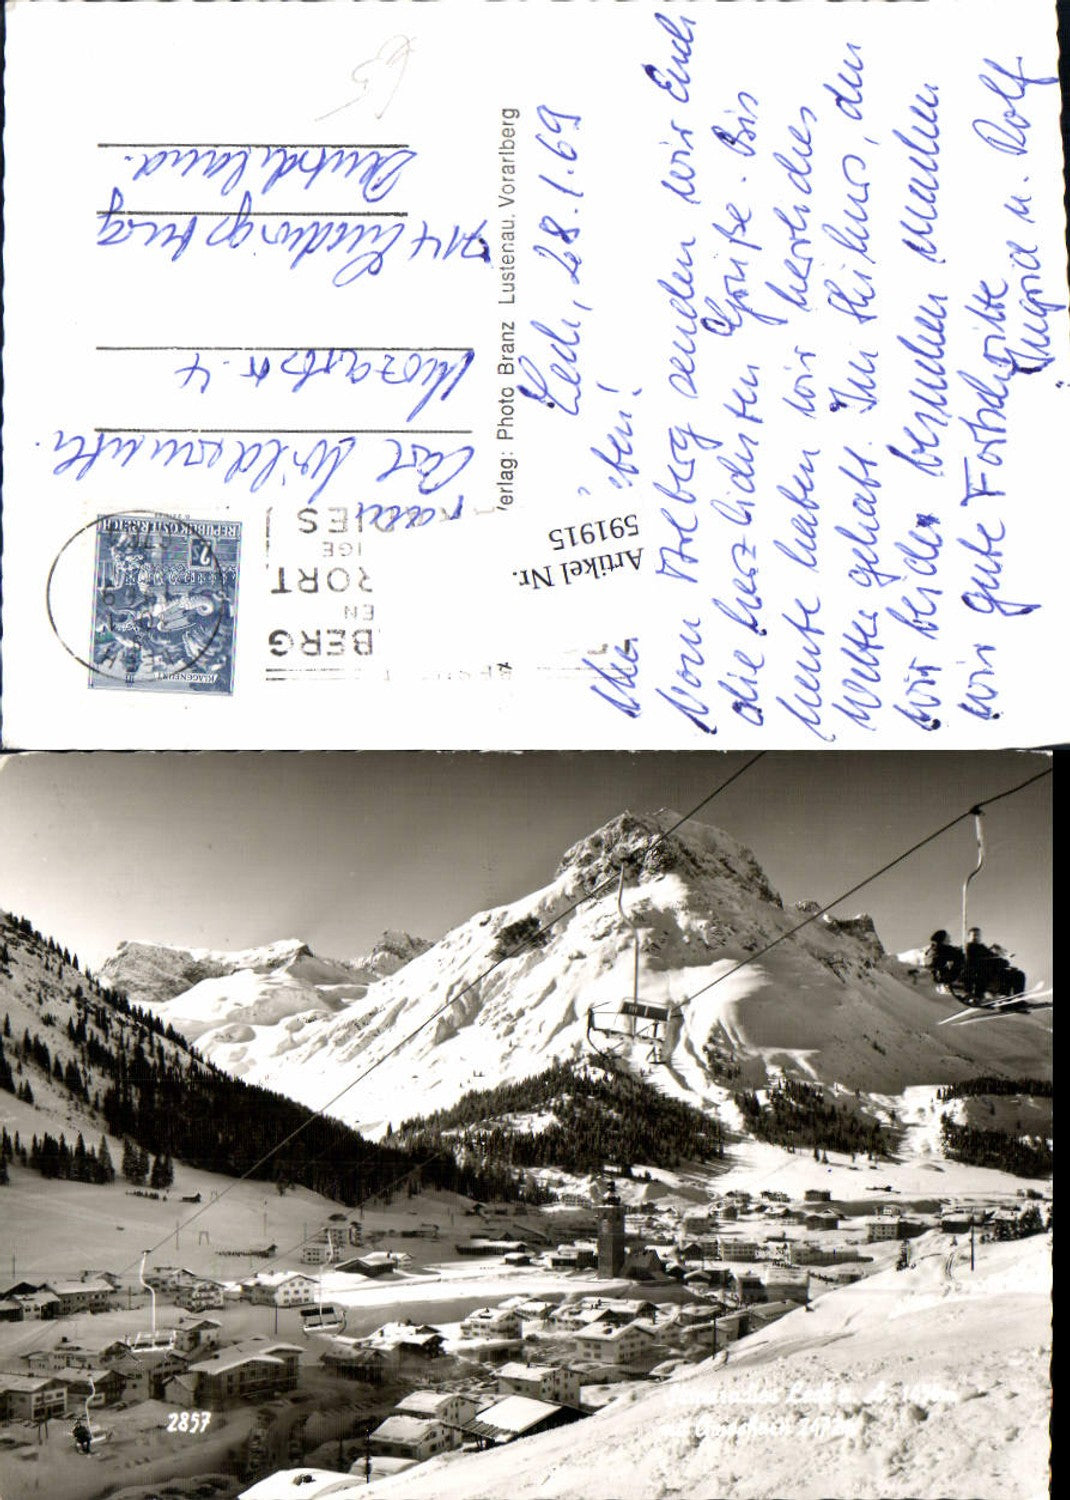 Lech, 28.1.69
Ihr ben!
Vom Arlberg senden wir Euch
die herzlichsten Grüße. Bis
heute haben wir herrliches
Wetter gehabt. Im Skikurs, den
wir beide besuchen machen
wir gute Fortschritte
Ingrid u. Rolf
Verlag: Photo Branz Lustenau. Vorarlberg
Mozartstr. 4
714 Ludwigsburg
Deutschland.
REPUBLIK ÖSTERREICH
2
KLAGENFURT
BERG
EN
RORT
IGE
DIES
Artikel Nr.
591915
2857
Lech a. A.